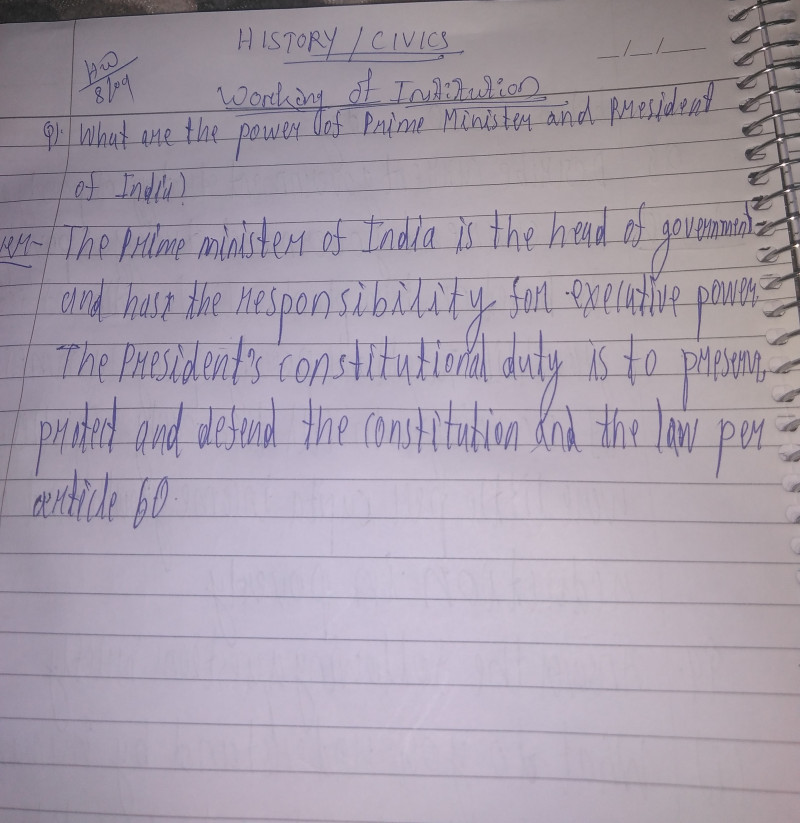 HISTORY / CIVICS
HW
8/09
Working of Institution
Q). What are the power of Prime Minister and President
of India?
The Prime minister of India is the head of government
and hast the responsibility for executive power.
The President's constitutional duty is to preserve,
protect and defend the constitution and the law per
article 60.